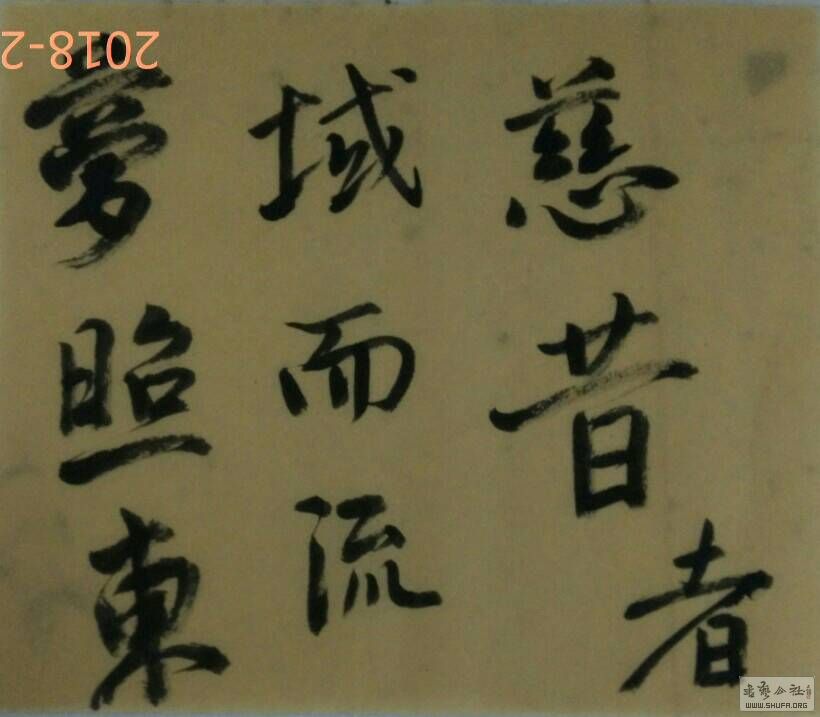 慈昔者
域而流
夢照東
2018-2
書藝公社
WWW.SHUFA.ORG